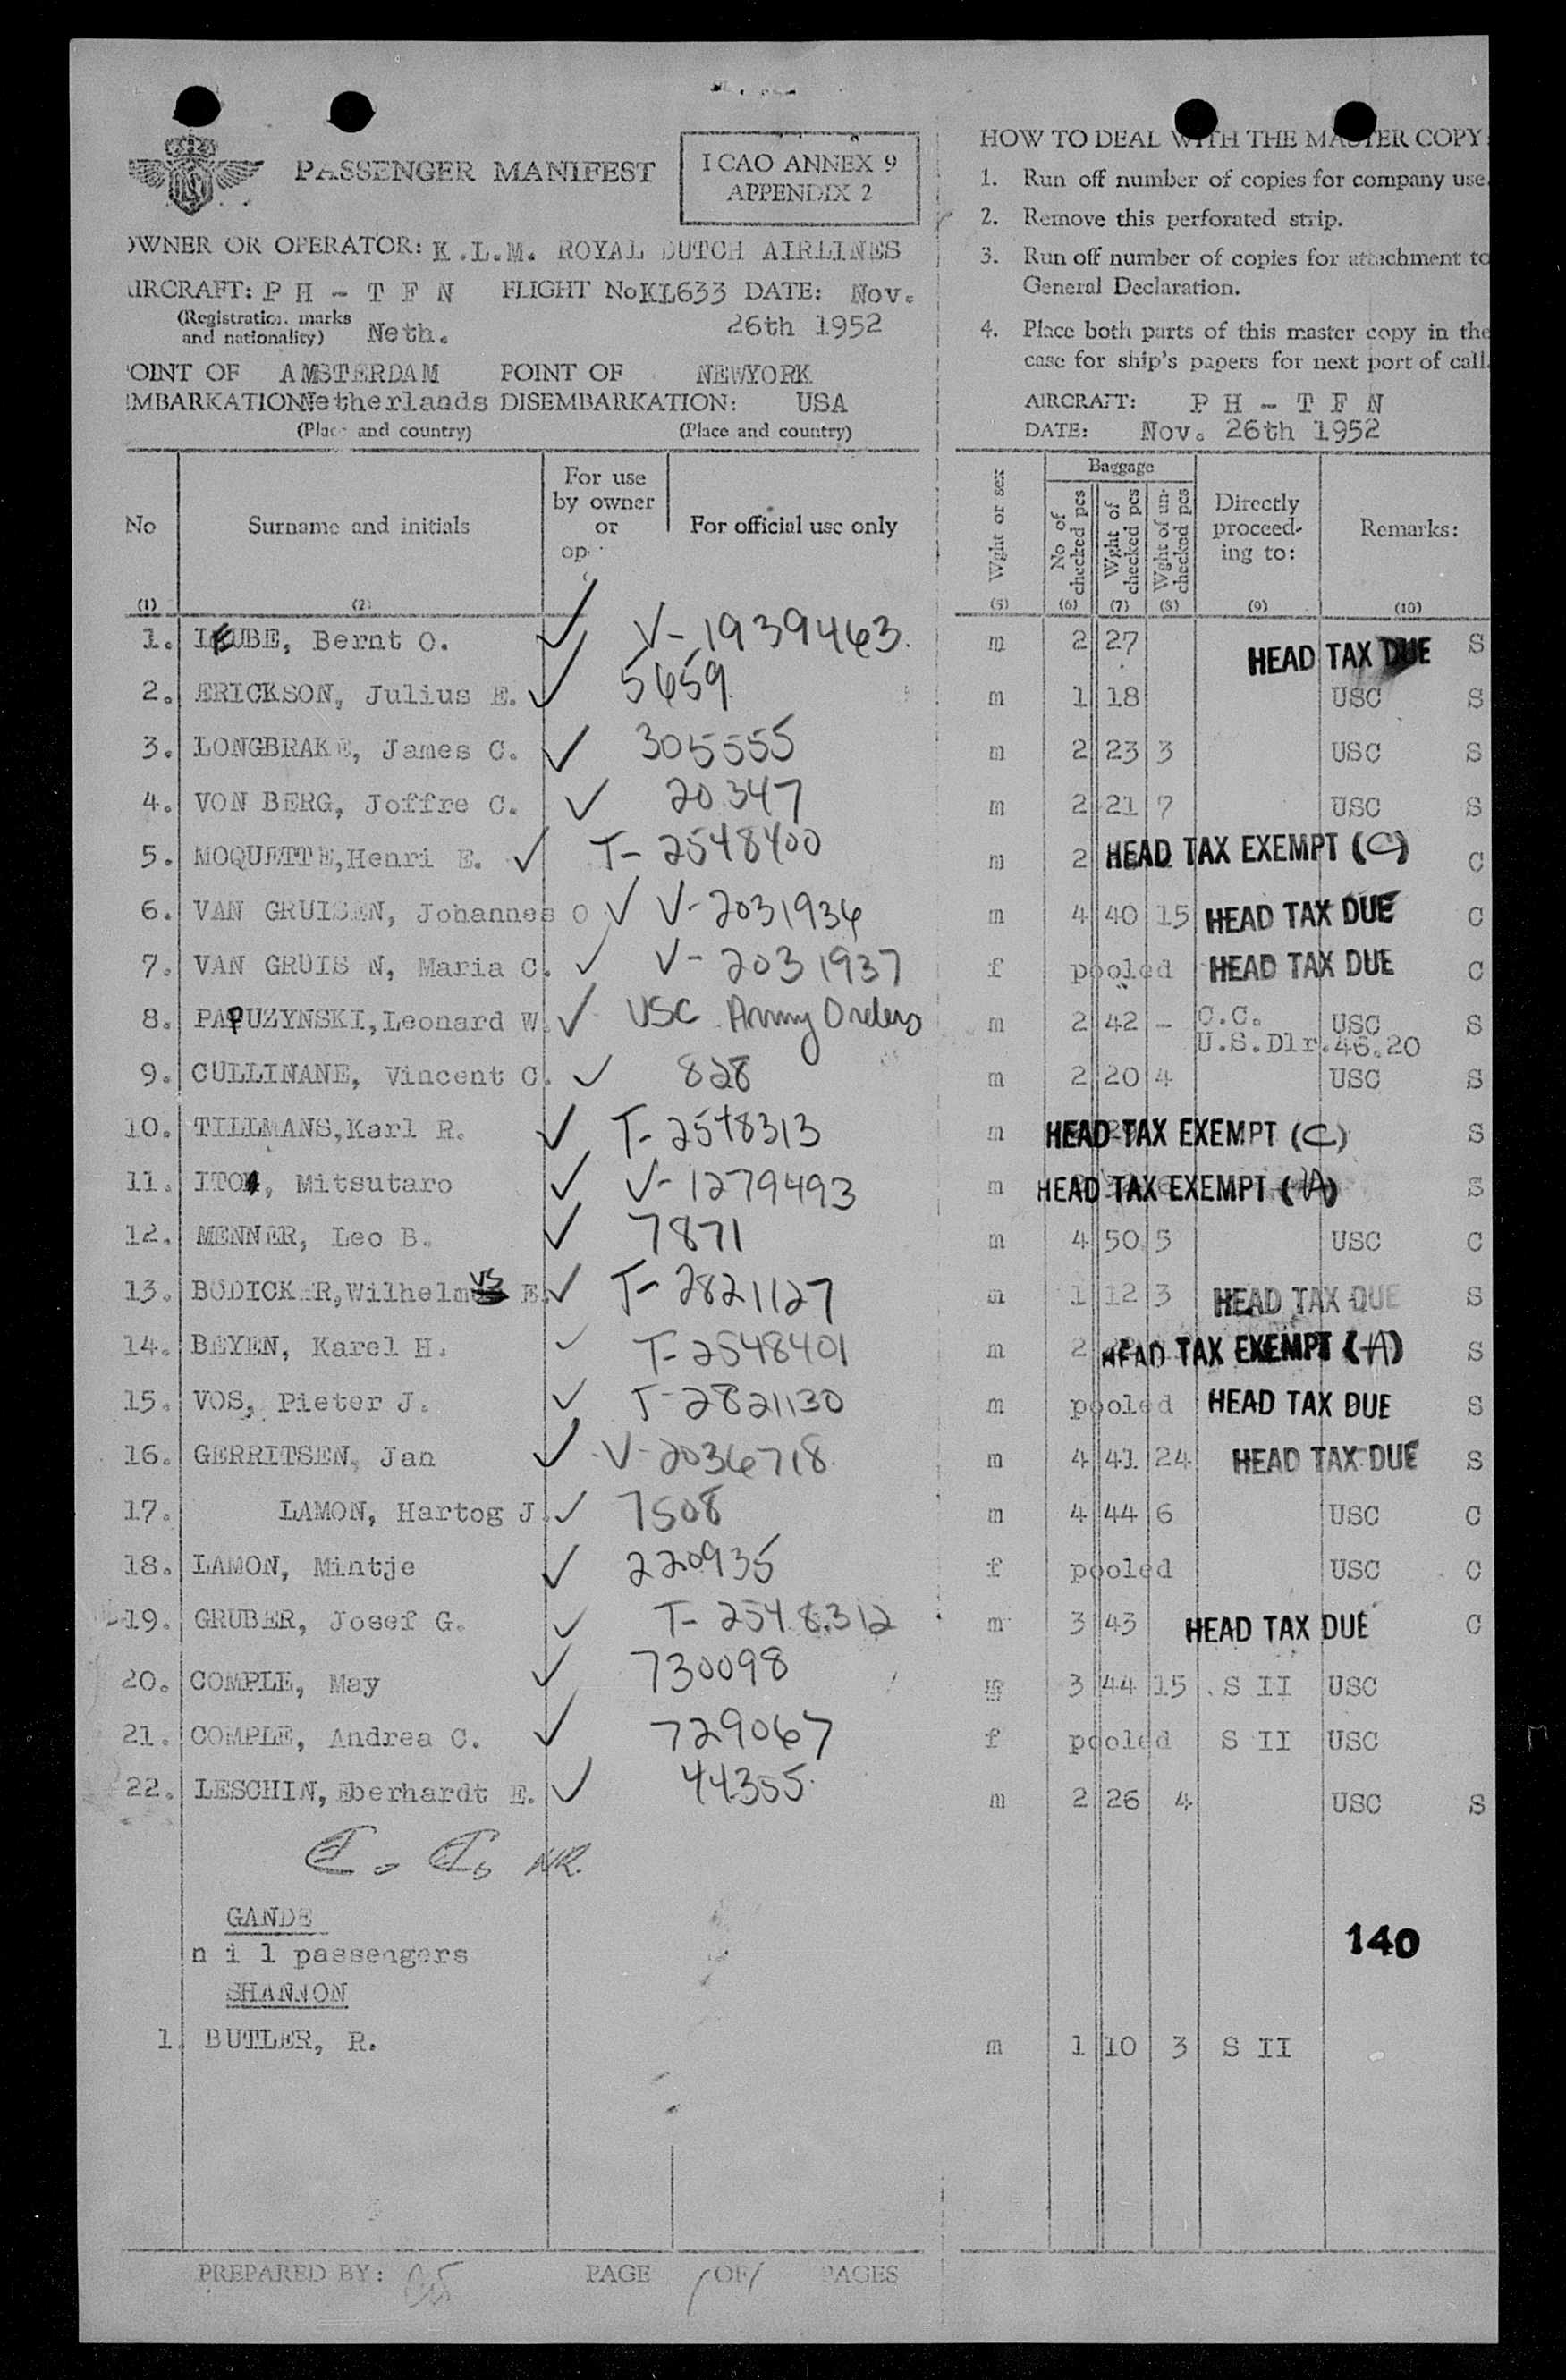 PASSENGER MANIFEST
ICAO ANNEX 9
APPENDIX 2
OWNER OR OPERATOR: K.L.M. ROYAL DUTCH AIRLINES
AIRCRAFT: P H - T F N FLIGHT No KL633 DATE: Nov.
(Registration marks
and nationality) Neth. 26th 1952
POINT OF AMSTERDAM POINT OF NEWYORK
EMBARKATION Netherlands DISEMBARKATION: USA
(Place and country) (Place and country)
HOW TO DEAL WITH THE MASTER COPY:
1. Run off number of copies for company use.
2. Remove this perforated strip.
3. Run off number of copies for attachment to
General Declaration.
4. Place both parts of this master copy in the
case for ship's papers for next port of call.
AIRCRAFT: P H - T F N
DATE: Nov. 26th 1952
No Surname and initials For use by owner or op For official use only Wght or sex Baggage No of checked pcs Wght of checked pcs Wght of un-checked pcs Directly proceed-ing to: Remarks:
(1) (2) (5) (6) (7) (8) (9) (10)
1. LEUBE, Bernt O. ✓ V-1939463. m 2 27 HEAD TAX DUE S
2. ERICKSON, Julius E. ✓ 5659 m 1 18 USC S
3. LONGBRAKE, James C. ✓ 305555 m 2 23 3 USC S
4. VON BERG, Joffre C. ✓ 20347 m 2 21 7 USC S
5. MOQUETTE, Henri E. ✓ T-2548400 m 2 HEAD TAX EXEMPT (C) C
6. VAN GRUISEN, Johannes O ✓ V-2031936 m 4 40 15 HEAD TAX DUE C
7. VAN GRUIS N, Maria C. ✓ V-2031937 f pooled HEAD TAX DUE C
8. PAPUZYNSKI, Leonard W. ✓ USC Army Orders m 2 42 - C.C. USC S
U.S.Dlr.46.20
9. CULLINANE, Vincent C. ✓ 828 m 2 20 4 USC S
10. TILLMANS, Karl R. ✓ T-2548313 m HEAD TAX EXEMPT (C) S
11. ITO, Mitsutaro ✓ V-1279493 m HEAD TAX EXEMPT (A) S
12. MENNER, Leo B. ✓ 7871 m 4 50 5 USC C
13. BODICKER, Wilhelmus E. ✓ T-2821127 m 1 12 3 HEAD TAX DUE S
14. BEYEN, Karel H. ✓ T-2548401 m 2 HEAD TAX EXEMPT (A) S
15. VOS, Pieter J. ✓ T-2821130 m pooled HEAD TAX DUE S
16. GERRITSEN, Jan ✓ V-2036718 m 4 41 24 HEAD TAX DUE S
17. LAMON, Hartog J. ✓ 7508 m 4 44 6 USC C
18. LAMON, Mintje ✓ 220935 f pooled USC C
19. GRUBER, Josef G. ✓ T-2548312 m 3 43 HEAD TAX DUE C
20. COMPLE, May ✓ 730098 3 44 15 S II USC
21. COMPLE, Andrea C. ✓ 729067 f pooled S II USC
22. LESCHIN, Eberhardt E. ✓ 44355 m 2 26 4 USC S
NR.
GANDE
n i l passengers
140
SHANNON
1. BUTLER, R. m 1 10 3 S II
PREPARED BY: PAGE 1 OF 1 PAGES